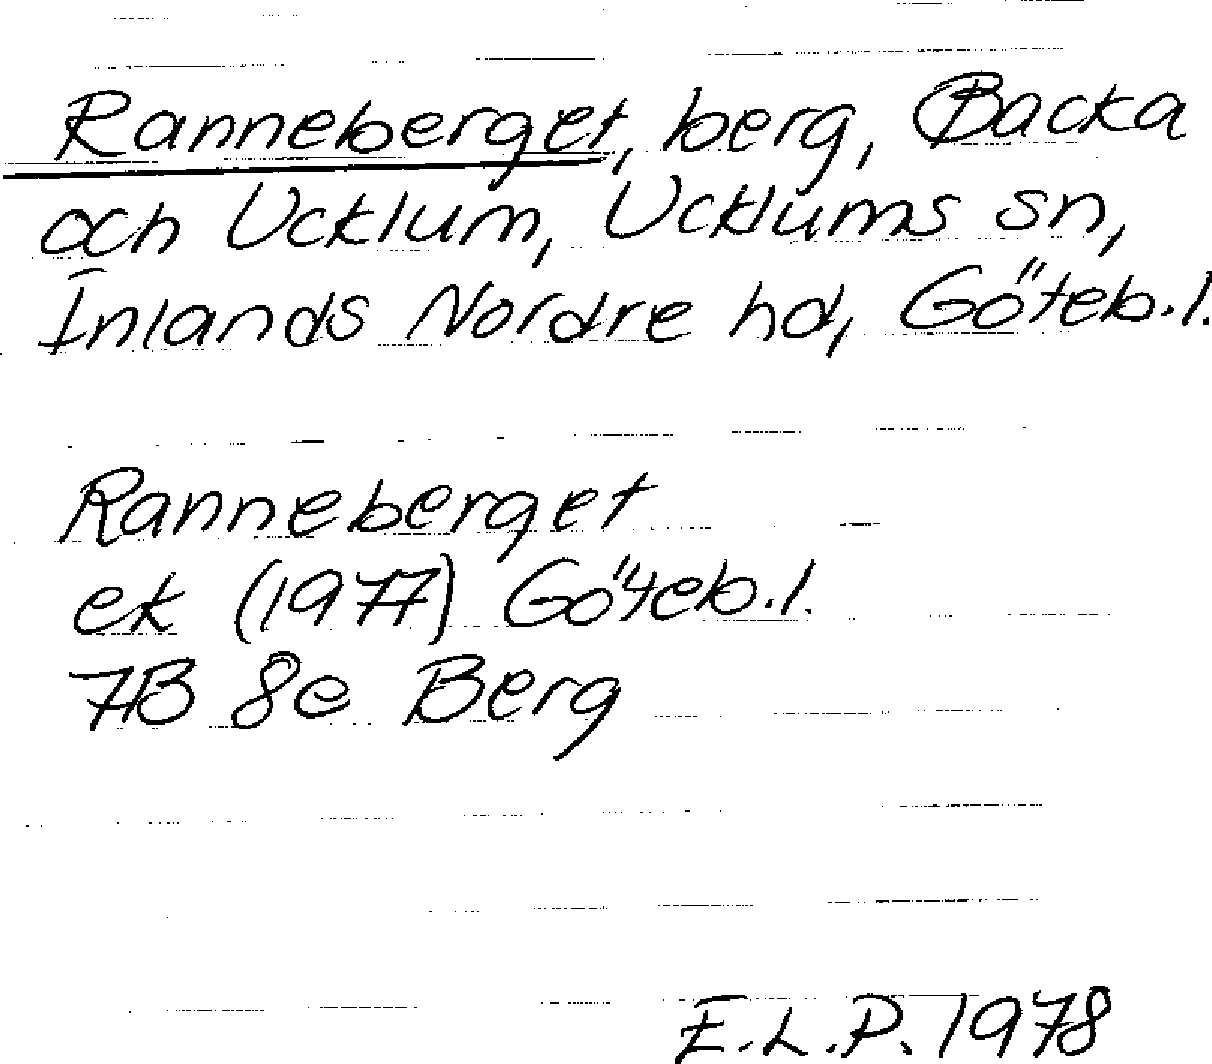 Ranneberget, berg, Backa
och Ucklum, Ucklums sn,
Inlands Nordre hd, Göteb.l.
Ranneberget
ek (1977) Göteb.l.
7B 8e Berg
E.L.P. 1978